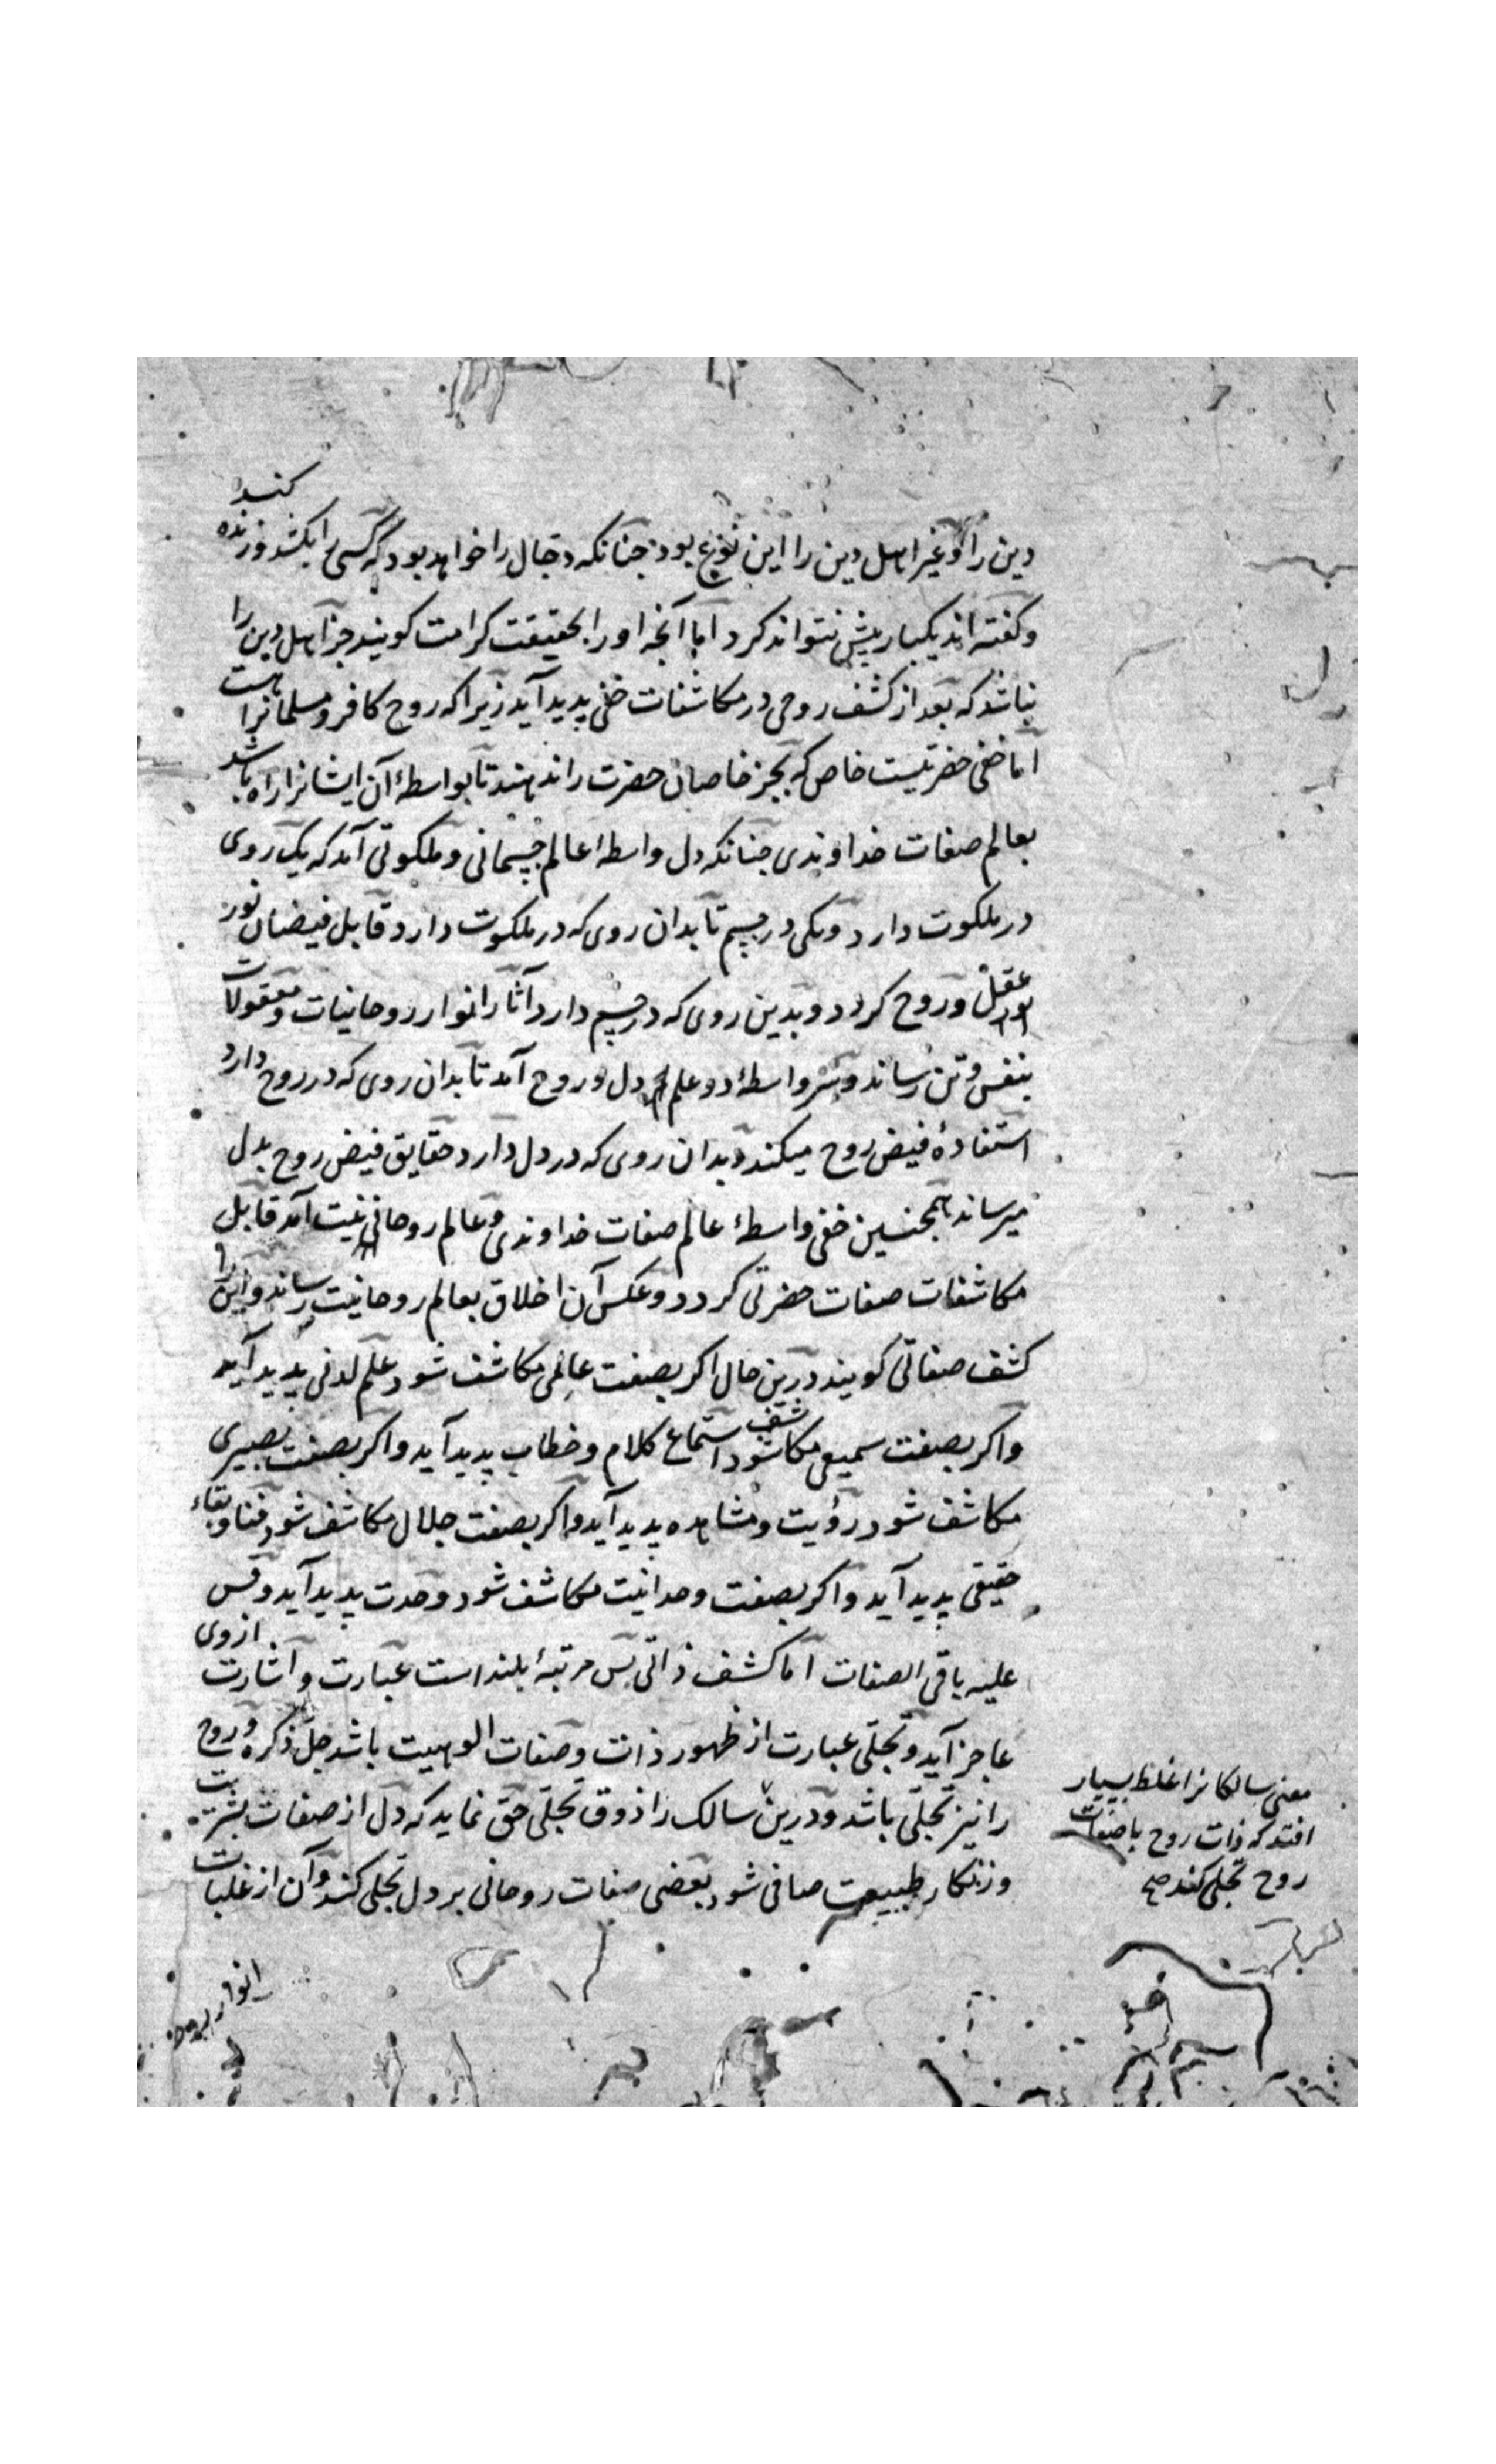 دین را و غیر اهل دین را این نوع بود جنانکه دجال را خواهد بود که کسی را بکشد و زنده کند
و کفته اند یکبار بیش نتواند کرد اما آنجه او را بحقیقت کرامت کویند جز اهل دین را
نباشد که بعد از کشف روحی در مکاشفات خفی پدید آید زیرا که روح کافر و مسلمانرا هست
اما خفی حضرتیست خاص که بجز خاصان حضرت را ندهند تا بواسطهٔ آن ایشانرا راه باشد
بعالم صفات خداوندی جنانکه دل واسطهٔ عالم جسمانی و ملکوتی آمد که یک روی
در ملکوت دارد و یکی در جسم تا بدان روی که در ملکوت دارد قابل فیضان نور
عقل و روح کردد و بدین روی که در جسم دارد آثار انوار روحانیات و معقولات
بنفس و تن رساند و سر واسطهٔ دو علم دل و روح آمد تا بدان روی که در روح دارد
استفادهٔ فیض روح میکند و بدان روی که در دل دارد حقایق فیض روح بدل
میرساند همجنین خفی واسطهٔ عالم صفات خداوندی و عالم روحانیت آمد قابل
مکاشفات صفات حضرتی کردد و عکس آن اخلاق بعالم روحانیت رساند و این را
کشف صفاتی کویند درین حال اکر بصفت عالمی مکاشف شود علم لدنی پدید آید
و اکر بصفت سمیعی مکاشف شود استماع کلام و خطاب پدید آید و اکر بصفت بصیری
مکاشف شود رؤیت و مشاهده پدید آید و اکر بصفت جلال مکاشف شود فنا و بقاء
حقیقی پدید آید و اکر بصفت وحدانیت مکاشف شود وحدت پدید آید و قس
علیه باقی الصفات اما کشف ذاتی بس مرتبهٔ بلند است عبارت و اشارت از وی
عاجز آید و تجلی عبارت از ظهور ذات و صفات الوهیت باشد جل ذکره و روح
را نیز تجلی باشد و درین سالک را ذوق تجلی حق نماید که دل از صفات بشریت
و زنکار طبیعت صافی شود بعضی صفات روحانی بر دل تجلی کند و آن از غلبات
معنی سالکانرا غلط بسیار
افتد که ذات روح با صفات
روح تجلی کند صح
انوار